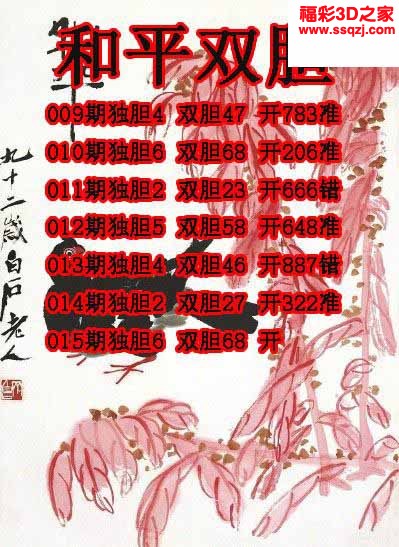 福彩3D之家
www.ssqzj.com
和平双胆
009期独胆4 双胆47 开783准
010期独胆6 双胆68 开206准
011期独胆2 双胆23 开666错
012期独胆5 双胆58 开648准
013期独胆4 双胆46 开887错
014期独胆2 双胆27 开322准
015期独胆6 双胆68 开
九十二岁白石老人